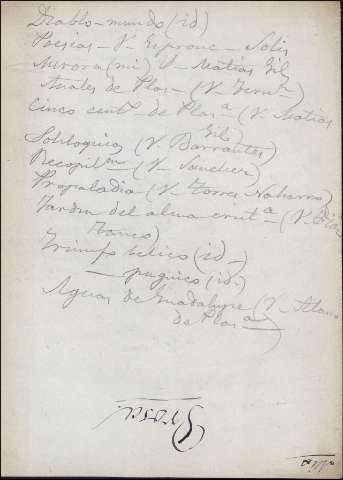 Diablo-mundo (id)
Poesias - V. Espronc - Solis
Aurora (mi) V - Matias Gil
Anales de Plas - (V. Fern
Cinco cent^s de Plas^a (V. Matias
Gil)
Soliloquios (V. Barrantes)
Recopil^on (V - Sanchez)
Propaladia (V - Torres Naharro)
Jardin del alma crist^a - (V. Diaz
Tanco)
Triunfo belico (id -)
(id -)
Aguas de Guadalupe (V - Alonso
de Plas^a)
Prosa